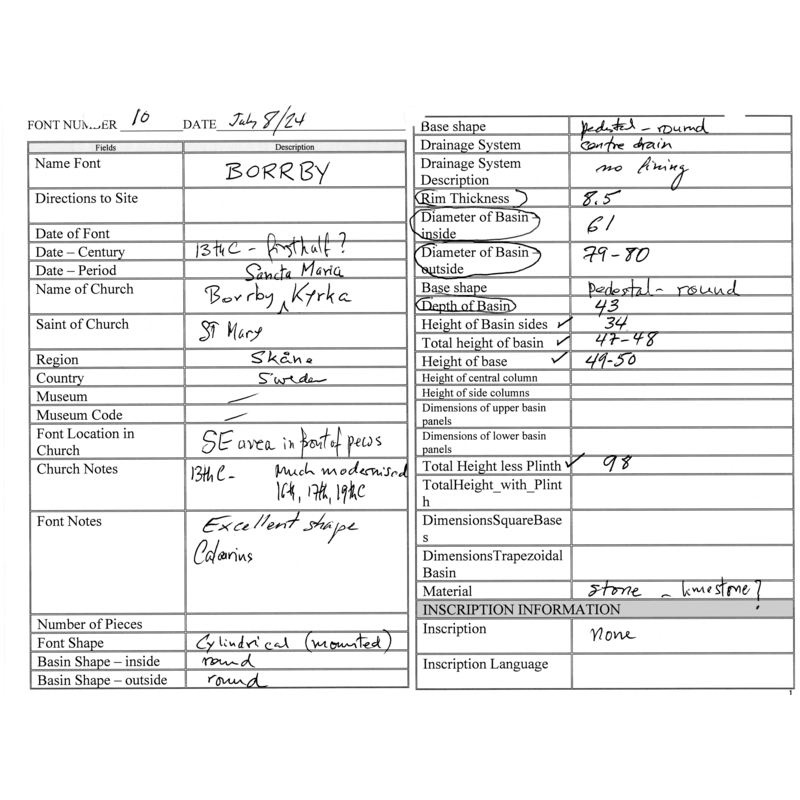 FONT NUMBER 10 DATE July 8/24
Fields Description
Name Font BORRBY
Directions to Site
Date of Font
Date – Century 13thC – first half?
Date – Period
Name of Church Borrby Sancta Maria Kyrka
Saint of Church St Mary
Region Skåne
Country Sweden
Museum —
Museum Code —
Font Location in
Church SE area in front of pews
Church Notes 13thC – Much modernised
16th, 17th, 19thC
Font Notes Excellent shape
Number of Pieces
Font Shape Cylindrical (mounted)
Basin Shape – inside round
Basin Shape – outside round
Base shape pedestal – round
Drainage System centre drain
Drainage System
Description no lining
Rim Thickness 8.5
Diameter of Basin –
inside 61
Diameter of Basin –
outside 79-80
Base shape pedestal – round
Depth of Basin 43
Height of Basin sides ✓ 34
Total height of basin ✓ 47-48
Height of base ✓ 49-50
Height of central column
Height of side columns
Dimensions of upper basin
panels
Dimensions of lower basin
panels
Total Height less Plinth ✓ 98
TotalHeight_with_Plint
h
DimensionsSquareBase
s
DimensionsTrapezoidal
Basin
Material stone – limestone?
INSCRIPTION INFORMATION
Inscription none
Inscription Language
1